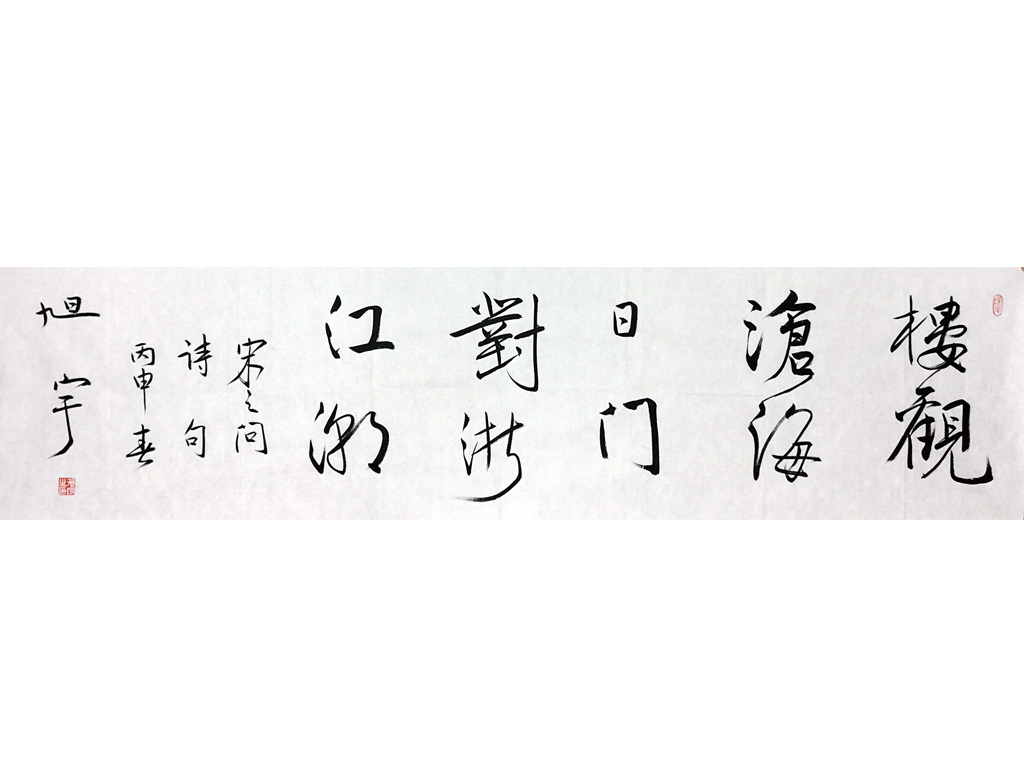 樓觀
滄海
日门
對浙
江潮
宋之问
詩句
丙申春
旭宇